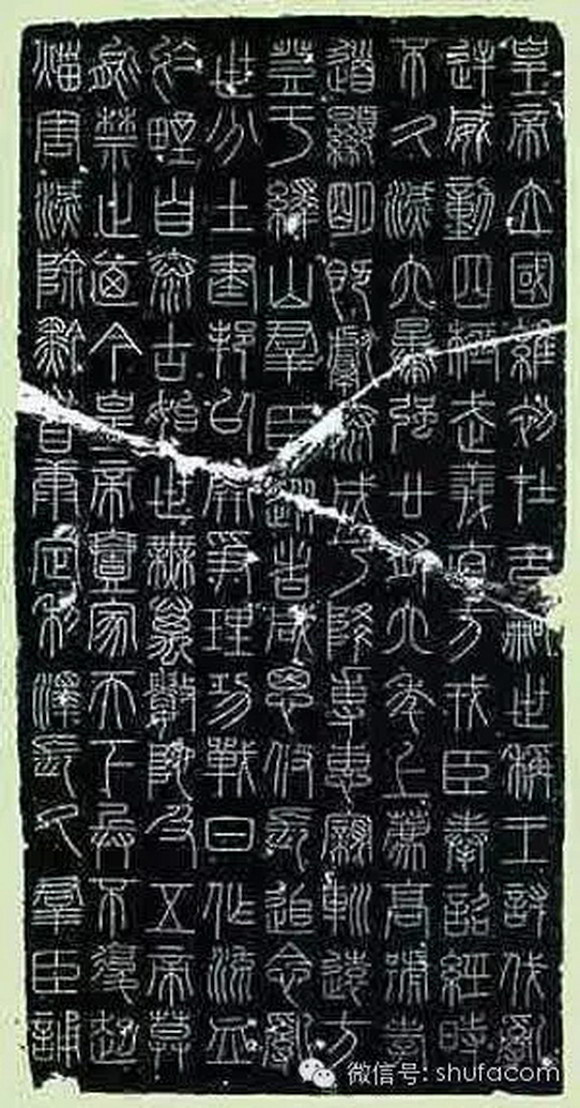 皇帝立國維初在昔嗣世稱王討伐亂
逆威動四極武義直方戎臣奉詔經時
不久滅六暴強廿有六年上薦高號孝
道顯明既獻泰成乃降專惠親巡遠方
登于繹山群臣從者咸思攸長追念亂
世分土建邦以開爭理功戰日作流血
於野自泰古始世無萬數陀及五帝莫
能禁止迺今皇帝壹家天下兵不復起
災害滅除黔首康定利澤長久群臣誦
微信号: shufacom